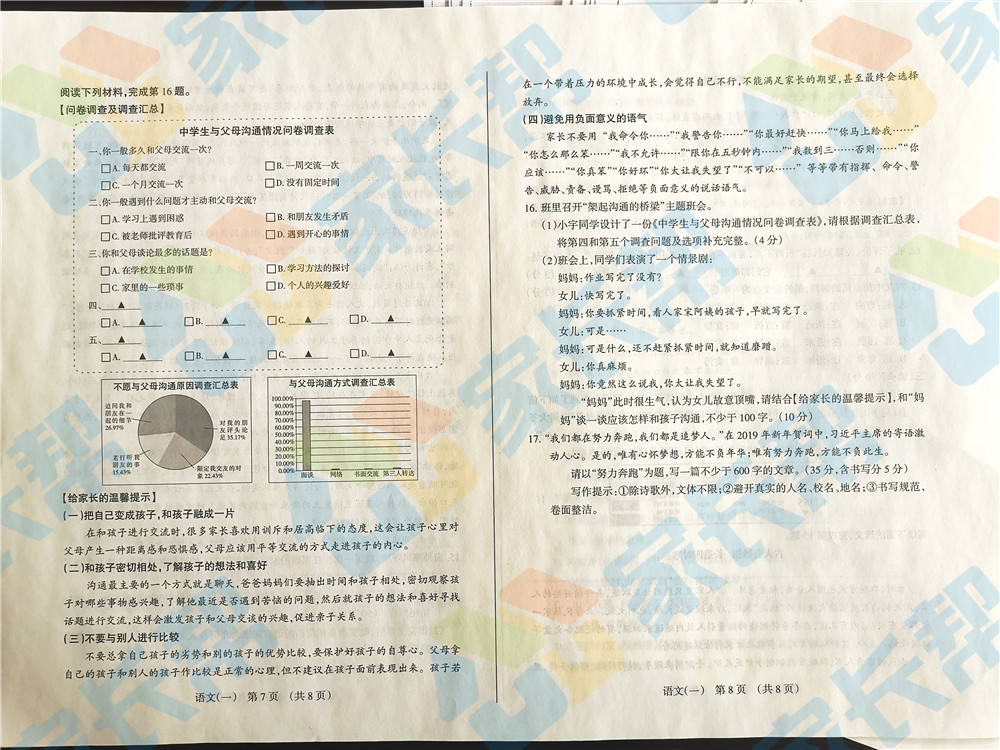 阅读下列材料,完成第16题。
【问卷调查及调查汇总】
中学生与父母沟通情况问卷调查表
一、你一般多久和父母交流一次?
□A. 每天都交流 □B. 一周交流一次
□C. 一个月交流一次 □D. 没有固定时间
二、你一般遇到什么问题才主动和父母交流?
□A. 学习上遇到困惑 □B. 和朋友发生矛盾
□C. 被老师批评教育后 □D. 遇到开心的事情
三、你和父母谈论最多的话题是?
□A. 在学校发生的事情 □B. 学习方法的探讨
□C. 家里的一些琐事 □D. 个人的兴趣爱好
四、▲
□A. ▲ □B. ▲ □C. ▲ □D. ▲
五、▲
□A. ▲ □B. ▲ □C. ▲ □D. ▲
不愿与父母沟通原因调查汇总表
追问我和
朋友在一
起的细节
26.97%
对我的朋
友评头论
足 35.17%
老打听我
朋友的事
15.43%
限定我交友的对
象 22.43%
与父母沟通方式调查汇总表
100.00%
90.00%
80.00%
70.00%
60.00%
50.00%
40.00%
30.00%
20.00%
10.00%
0.00%
面谈 网络 书面交流 第三人转达
【给家长的温馨提示】
(一)把自己变成孩子,和孩子融成一片
在和孩子进行交流时,很多家长喜欢用训斥和居高临下的态度,这会让孩子心里对
父母产生一种距离感和恐惧感,父母应该用平等交流的方式走进孩子的内心。
(二)和孩子密切相处,了解孩子的想法和喜好
沟通最主要的一个方式就是聊天,爸爸妈妈们要抽出时间和孩子相处,密切观察孩
子对哪些事物感兴趣,了解他最近是否遇到苦恼的问题,然后就孩子的想法和喜好寻找
话题进行交流,这样会激发孩子和父母交谈的兴趣,促进亲子关系。
(三)不要与别人进行比较
不要总拿自己孩子的劣势和别的孩子的优势比较,要保护好孩子的自尊心。父母拿
自己的孩子和别人的孩子作比较是正常的心理,但不建议在孩子面前表现出来。孩子若
语文(一) 第7页 (共8页)
在一个带着压力的环境中成长,会觉得自己不行,不能满足家长的期望,甚至最终会选择
放弃。
(四)避免用负面意义的语气
家长不要用“我命令你……”“我警告你……”“你最好赶快……”“你马上给我……”
“你怎么那么笨……”“我不允许……”“限你在五秒钟内……”“我数到三……否则……”“你
应该……”“你真笨”“你好坏”“你太让我失望了”“不可以……” 等等带有指挥、命令、警
告、威胁、责备、谩骂、拒绝等负面意义的说话语气。
16. 班里召开“架起沟通的桥梁”主题班会。
(1)小宇同学设计了一份《中学生与父母沟通情况问卷调查表》,请根据调查汇总表,
将第四和第五个调查问题及选项补充完整。(4分)
(2)班会上,同学们表演了一个情景剧:
妈妈:作业写完了没有?
女儿:快写完了。
妈妈:你要抓紧时间,看人家宋阿姨的孩子,早就写完了。
女儿:可是……
妈妈:可是什么,还不赶紧抓紧时间,就知道磨蹭。
女儿:你真麻烦。
妈妈:你竟然这么说我,你太让我失望了。
“妈妈”此时很生气,认为女儿故意顶嘴,请结合【给家长的温馨提示】,和“妈
妈”谈一谈应该怎样和孩子沟通,不少于100字。(10分)
17. “我们都在努力奔跑,我们都是追梦人。”在2019年新年贺词中,习近平主席的寄语激
动人心。是的,唯有心怀梦想,方能不负年华;唯有努力奔跑,方能不负此生。
请以“努力奔跑”为题,写一篇不少于600字的文章。(35分,含书写分5分)
写作提示:①除诗歌外,文体不限;②避开真实的人名、校名、地名;③书写规范,
卷面整洁。
语文(一) 第8页 (共8页)
家长帮